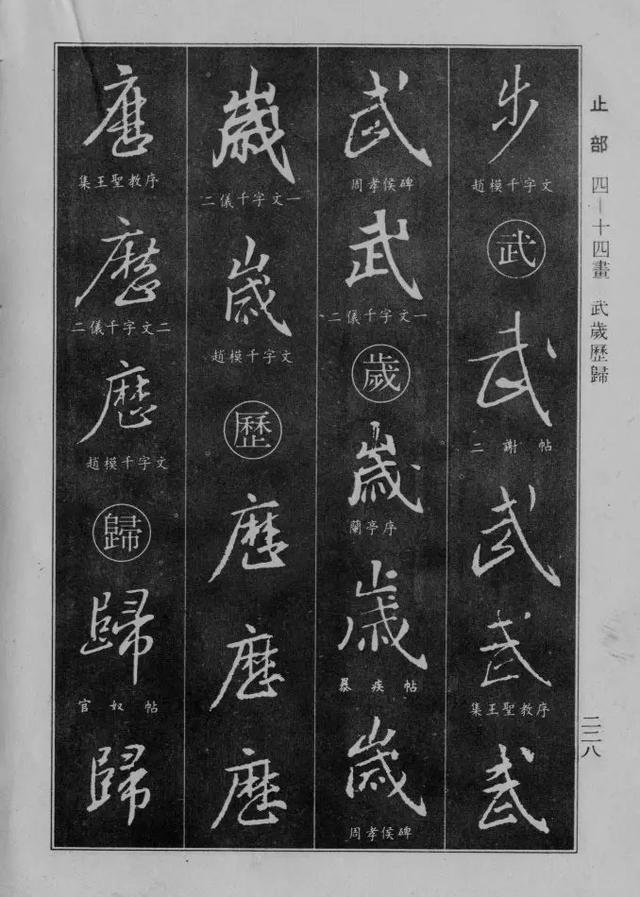 止部 四—十四畫 武歲歷歸
二二八
步
趙模千字文
武
武
二謝帖
武
武
集王聖教序
武
武
周孝侯碑
武
二儀千字文一
歲
歲
蘭亭序
歲
暴疾帖
歲
周孝侯碑
歲
二儀千字文一
歲
趙模千字文
歷
歷
歷
歷
歷
集王聖教序
歷
二儀千字文二
歷
趙模千字文
歸
歸
官奴帖
歸